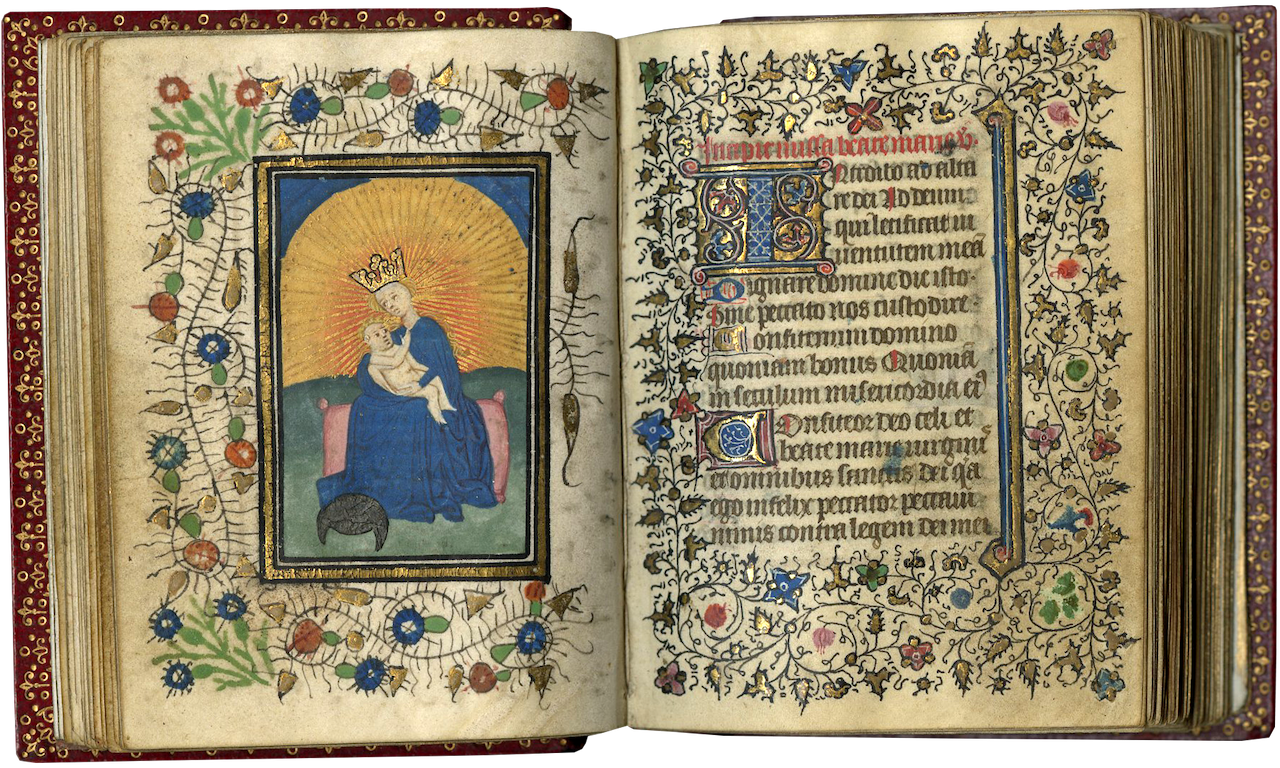 Incipit missa beate marie v̄.
Introibo ad alta
re dei Ad deum
qui letificat iu
uentutem meā
Dignare domine die isto
sine peccato nos custodire
Confitemini domino
quoniam bonus Quoniā
in seculum misericordia eiꝰ
Confiteor deo celi et
beate marie uirgini
et omnibus sanctis dei qa
ego infelix peccator peccaui
nimis contra legem dei mei